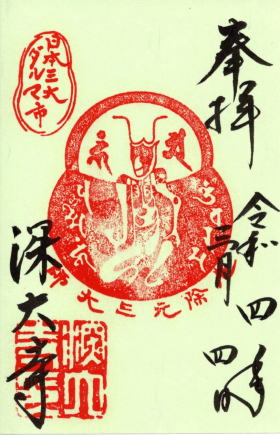 奉拝
令和四年
三月四日
日本三大
ダルマ市
元三大
除
深大寺